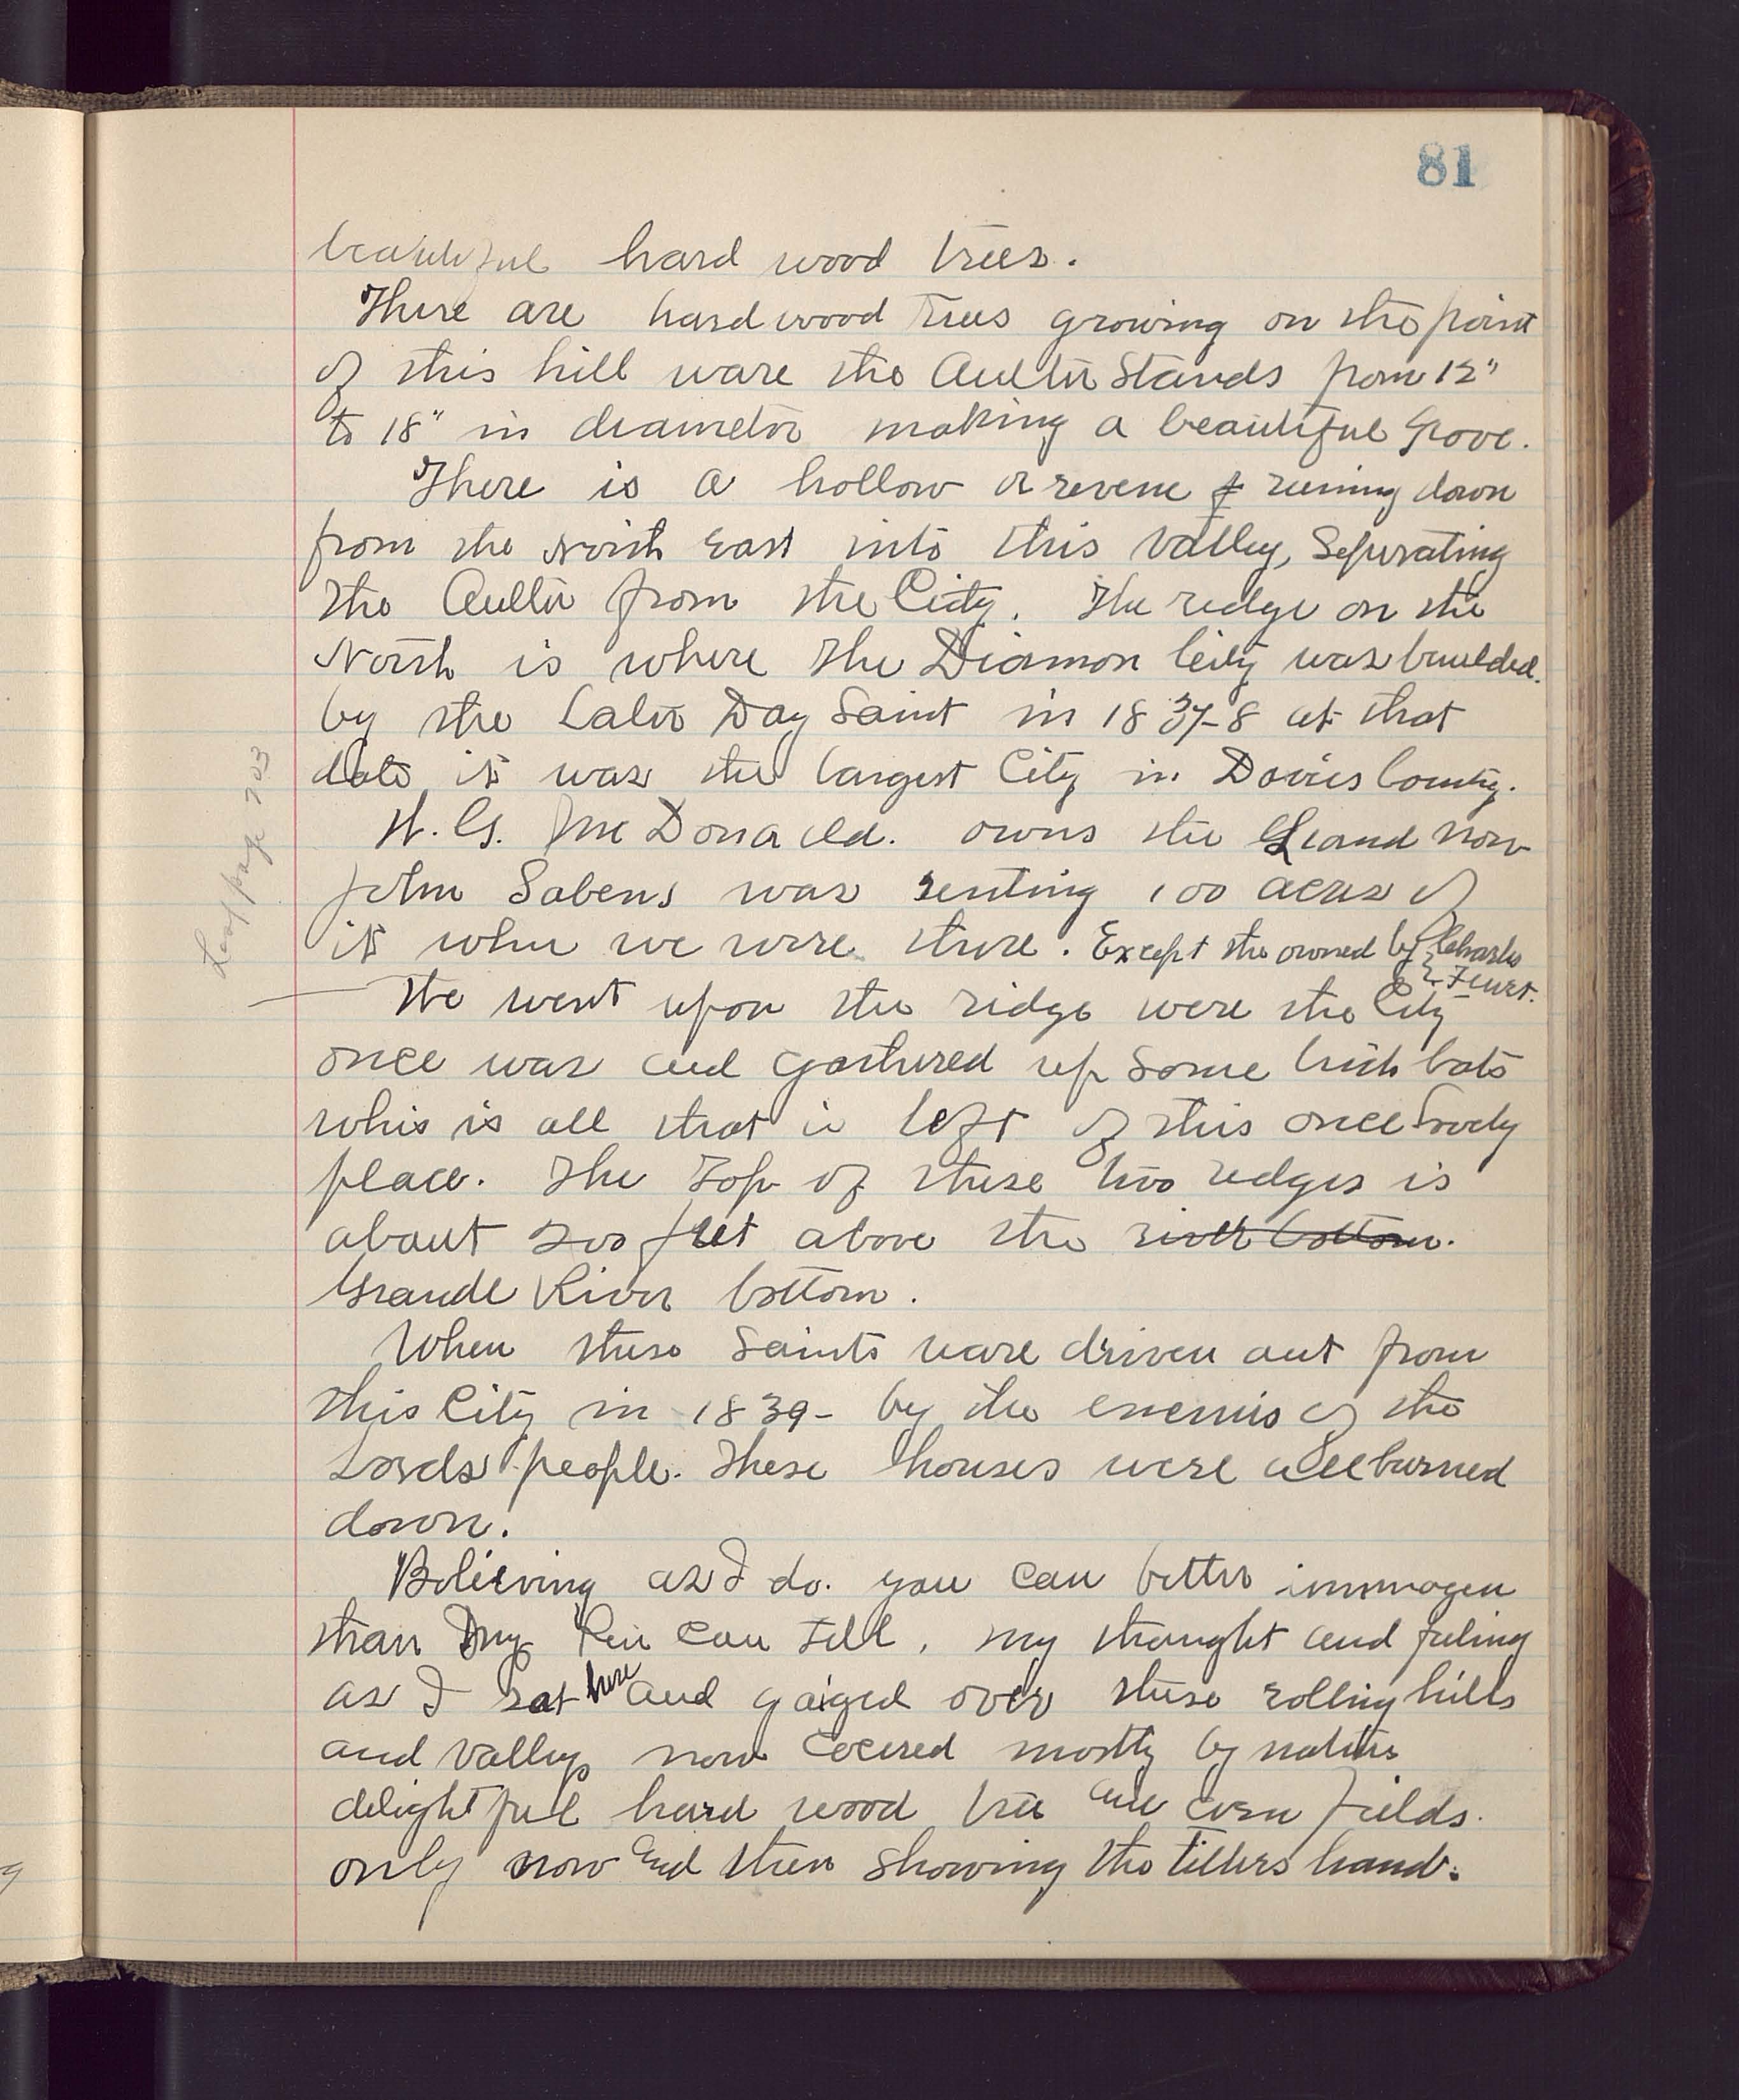 81
beautiful hard wood trees.
There are hard wood Trees growing on the point
of this hill ware the Aulter Stands from 12"
to 18" in diameter making a beautiful Grove.
There is a hollow or revene runing down
from the North East into this Valley, Seperating
the Aulter from the City. The redge on the
North is where the Diamon City was builded.
by the Later Day Saint in 1837-8 at that
date it was the largest City in Davies County.
McDonald. owns the Land now
John Sabens was renting 100 acres of
it when we were there. Except the owned by Charles
& Feurt.
We went upon the ridge were the City
once was and gathured up Some brick bats
whis is all that is left of this once lovely
place. The Top of these two redges is
about 200 feet above the river bottom.
Grande River bottom.
When these Saints ware driven out from
this City in 1839- by the enemis of the
Lords people. These houses were all burned
down.
Believing as I do. you can better immagen
than my Pen can tell, my thought and feling
as I Sat here and gaized over these rolling hills
and valleys now covered mostly by natures
delightful hard wood tree and corn fields.
only now and then showing the tillers hand.
page 203